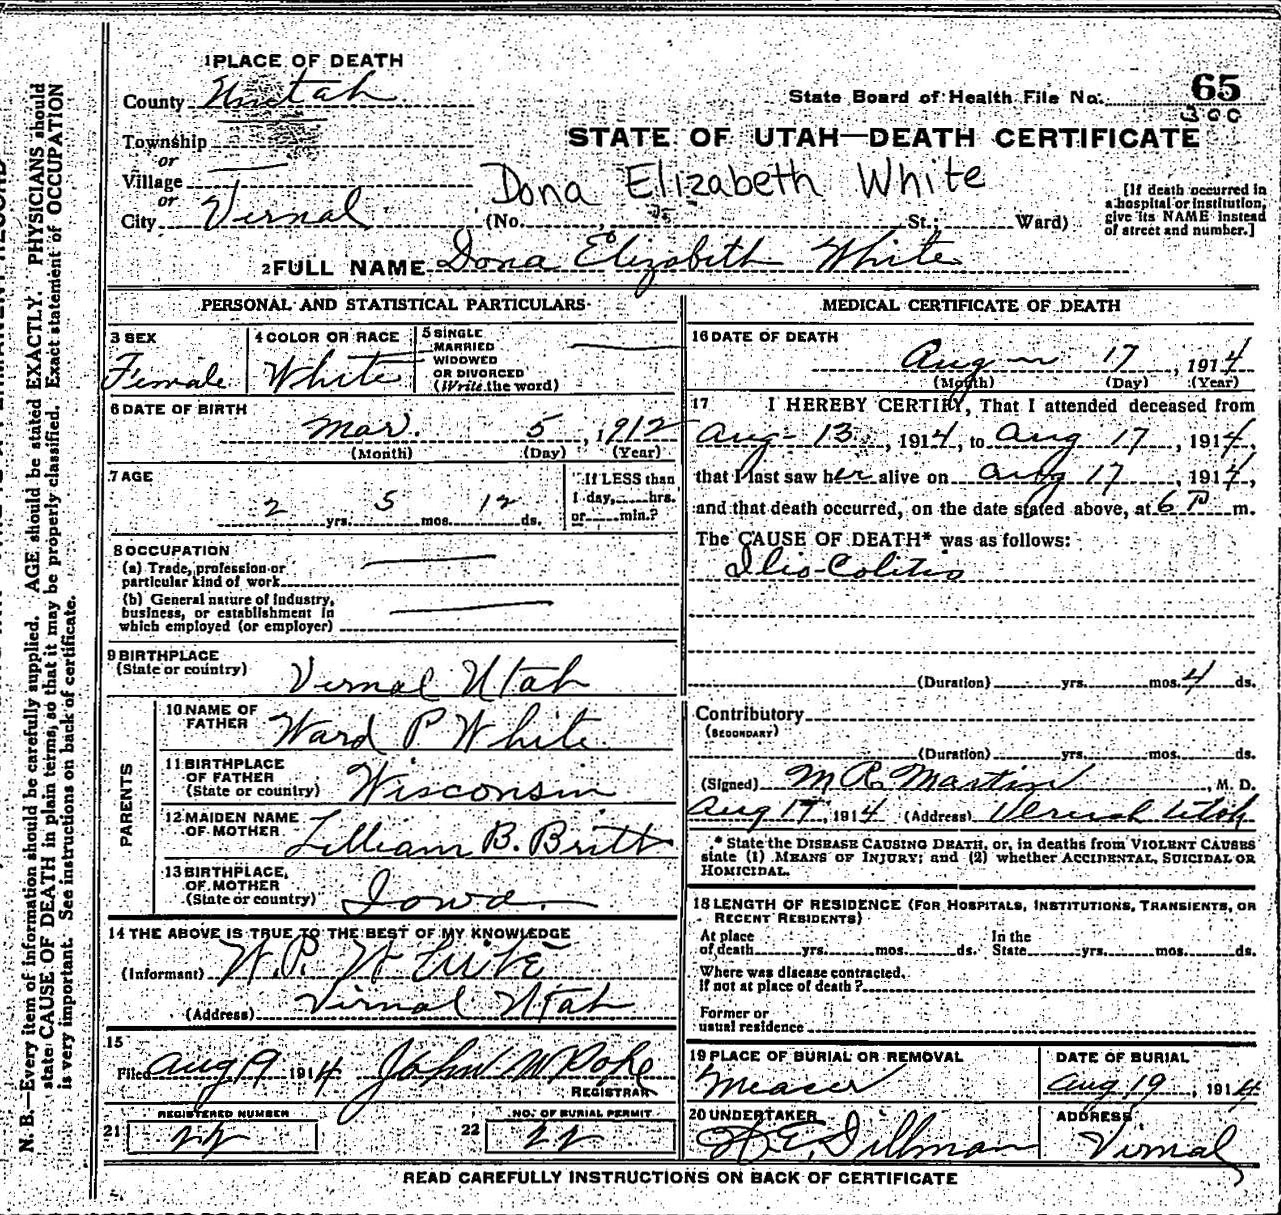 1 PLACE OF DEATH
County Uintah
Township
or
Village
or
City Vernal (No. St.; Ward)
State Board of Health File No. 65
300
STATE OF UTAH—DEATH CERTIFICATE
Dona Elizabeth White
[If death occurred in
a hospital or institution,
give its NAME instead
of street and number.]
2 FULL NAME Dona Elizabeth White
PERSONAL AND STATISTICAL PARTICULARS
3 SEX
Female
4 COLOR OR RACE
White
5 SINGLE
MARRIED
WIDOWED
OR DIVORCED
(Write the word)
6 DATE OF BIRTH
Mar. 5, 1912
(Month) (Day) (Year)
7 AGE
2 yrs. 5 mos. 12 ds.
If LESS than
1 day, hrs.
or min.?
8 OCCUPATION
(a) Trade, profession or
particular kind of work
(b) General nature of industry,
business, or establishment in
which employed (or employer)
9 BIRTHPLACE
(State or country) Vernal Utah
PARENTS
10 NAME OF
FATHER Ward P White
11 BIRTHPLACE
OF FATHER
(State or country) Wisconsin
12 MAIDEN NAME
OF MOTHER Lilliam B. Britt
13 BIRTHPLACE
OF MOTHER
(State or country) Iowa
14 THE ABOVE IS TRUE TO THE BEST OF MY KNOWLEDGE
(Informant) W.P. White
(Address) Vernal Utah
15
Filed Aug 9 1914 John M
REGISTRAR
REGISTERED NUMBER
21 22
NO. OF BURIAL PERMIT
22 22
MEDICAL CERTIFICATE OF DEATH
16 DATE OF DEATH
Aug 17, 1914
(Month) (Day) (Year)
17 I HEREBY CERTIFY, That I attended deceased from
Aug- 13, 1914, to Aug 17, 1914,
that I last saw her alive on Aug 17, 1914,
and that death occurred, on the date stated above, at 6 P m.
The CAUSE OF DEATH* was as follows:
Ilio-Colitis
(Duration) yrs. mos. 4 ds.
Contributory
(SECONDARY)
(Duration) yrs. mos. ds.
(Signed) M R Martin, M. D.
Aug 17, 1914 (Address) Vernal Utah
* State the DISEASE CAUSING DEATH, or, in deaths from VIOLENT CAUSES
state (1) MEANS OF INJURY; and (2) whether ACCIDENTAL, SUICIDAL OR
HOMICIDAL.
18 LENGTH OF RESIDENCE (FOR HOSPITALS, INSTITUTIONS, TRANSIENTS, OR
RECENT RESIDENTS)
At place
of death yrs. mos. ds. In the
State yrs. mos. ds.
Where was disease contracted,
if not at place of death?
Former or
usual residence
19 PLACE OF BURIAL OR REMOVAL
Measer
DATE OF BURIAL
Aug 19, 1914
20 UNDERTAKER
W E Dillman
ADDRESS
Vernal
READ CAREFULLY INSTRUCTIONS ON BACK OF CERTIFICATE
N. B.—Every item of information should be carefully supplied. AGE should be stated EXACTLY. PHYSICIANS should
state CAUSE OF DEATH in plain terms, so that it may be properly classified. Exact statement of OCCUPATION
is very important. See instructions on back of certificate.